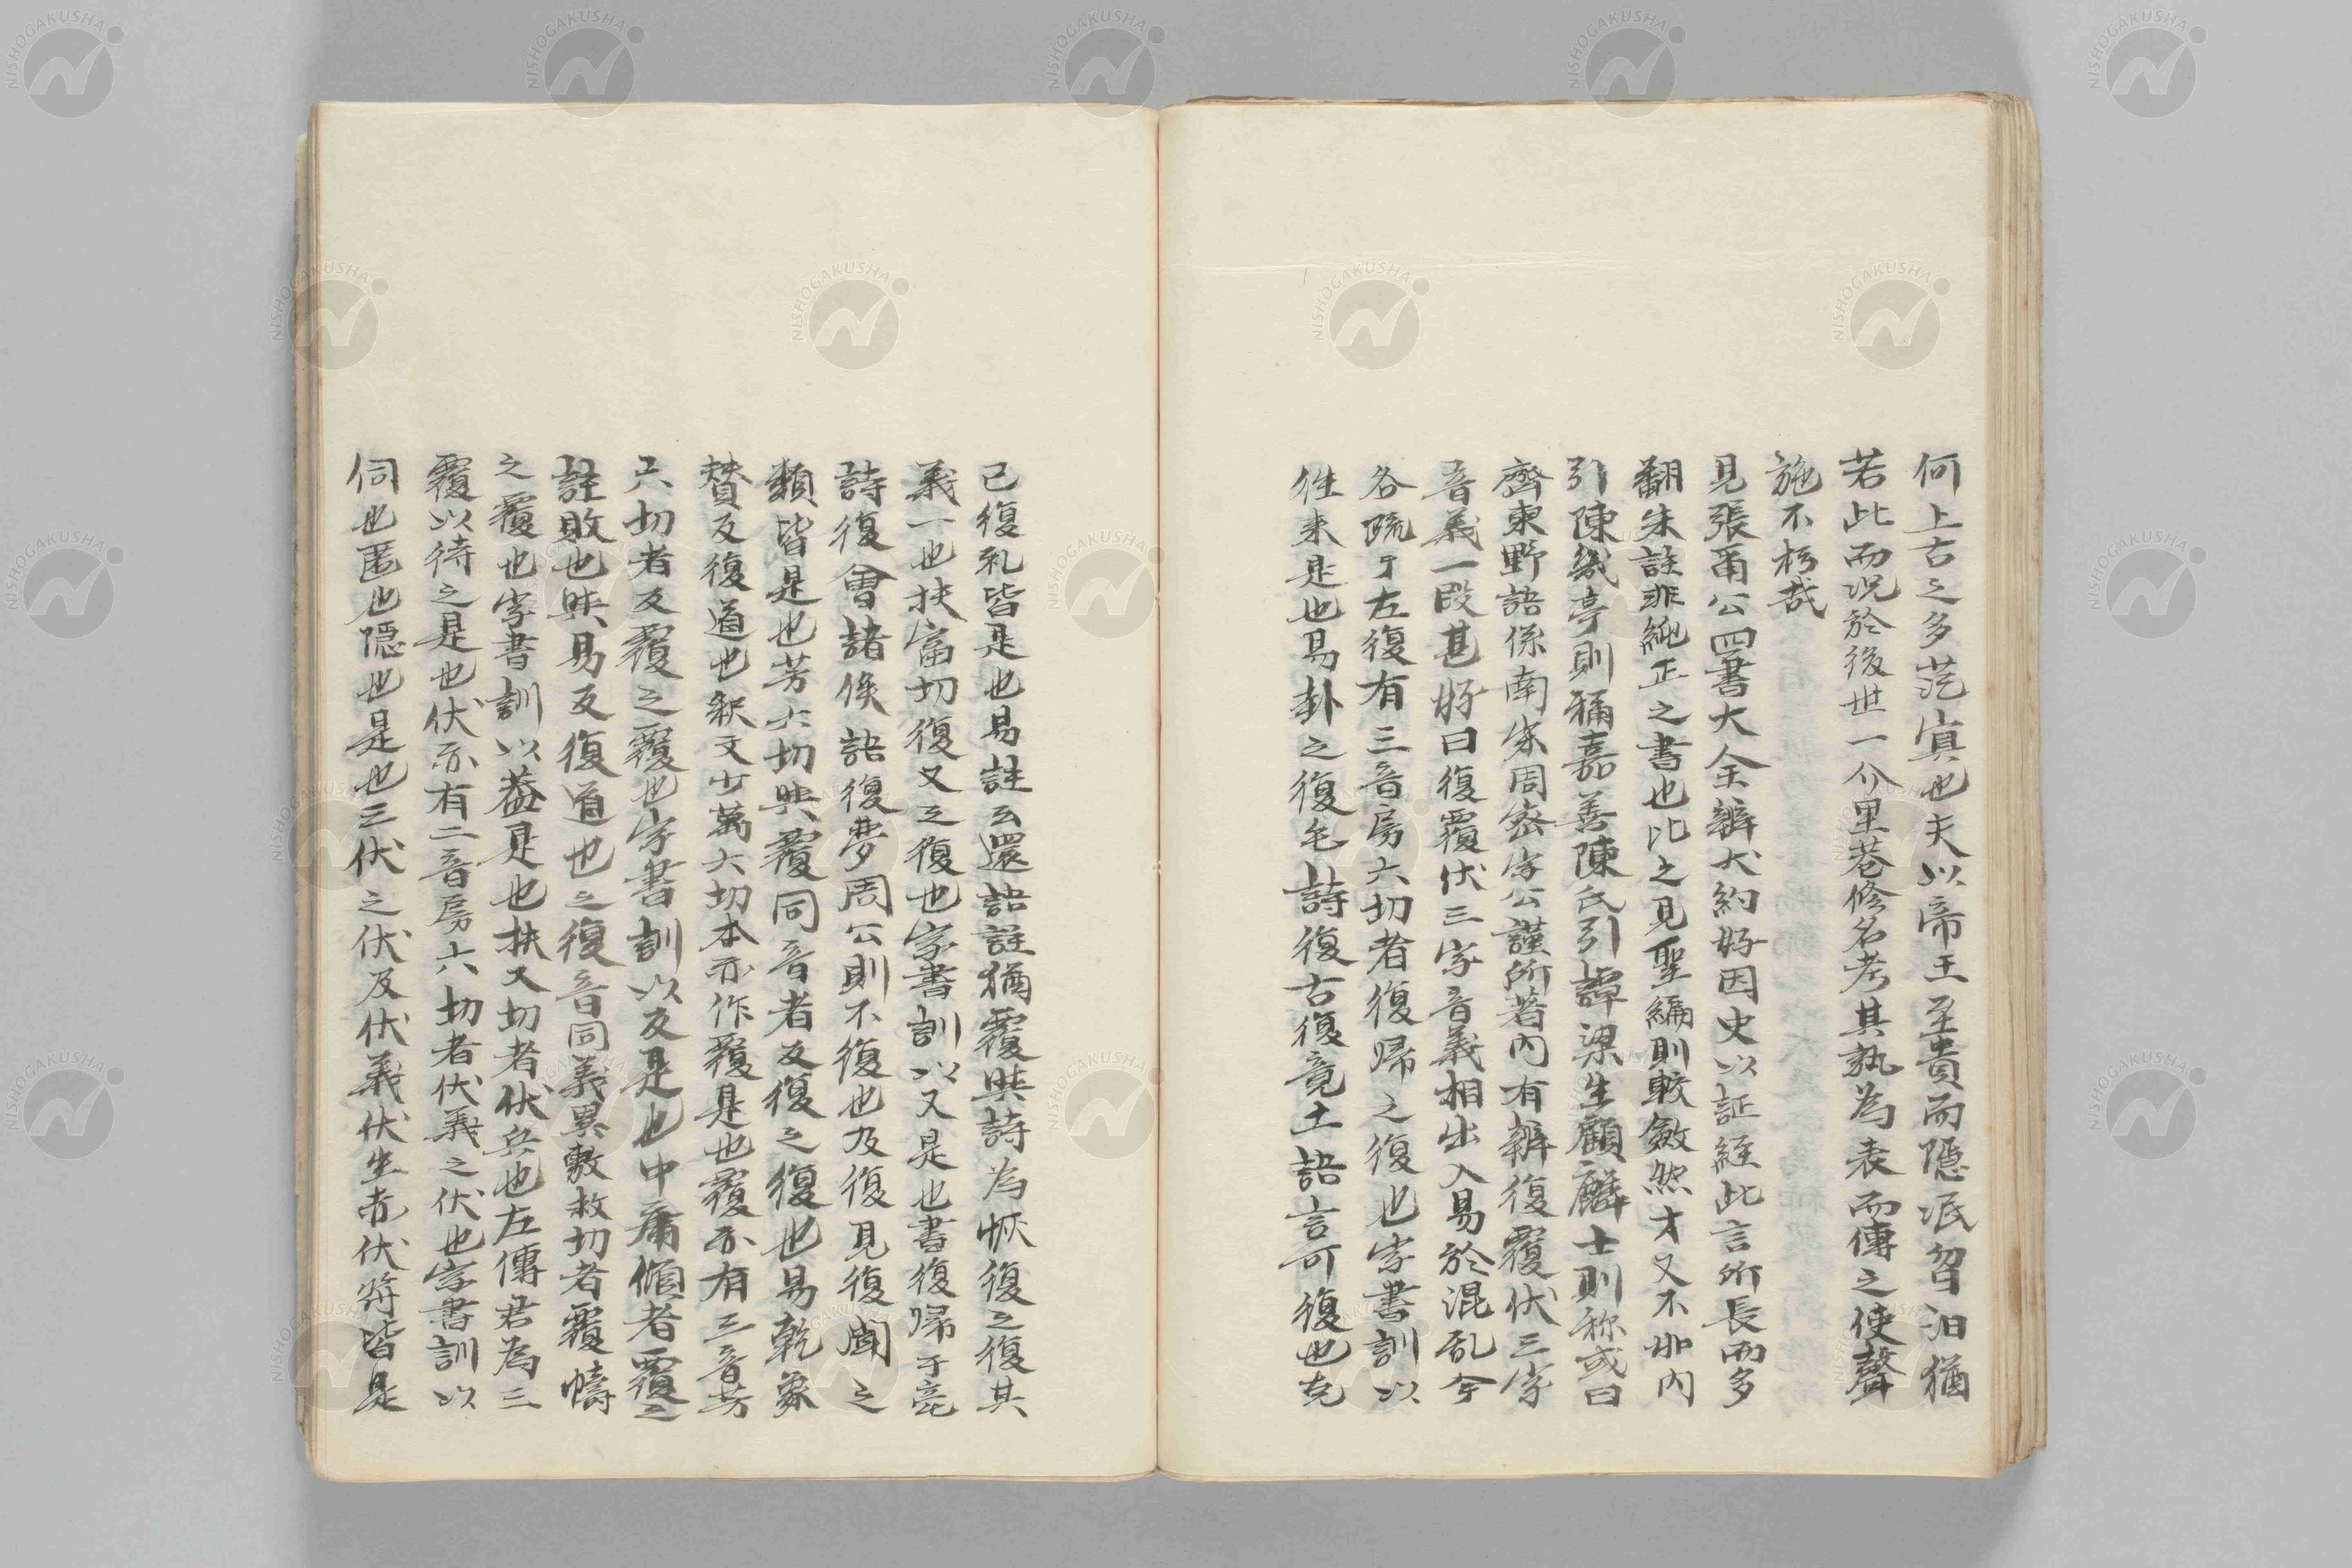 何上古之多茫寘也夫以帝王至貴而隠泯曶汩猶
若此而况於後世一介里巷修名考其孰為表而傳之使聲
施不朽哉
見張甬公四書大全辨大約好因史以証経此言所長而多
翻朱註非純正之書也比之見聖編則較斂然才又不如内
引陳幾亭則稱嘉善陳氏引譚梁生顧麟士則称或曰
齊東野語係南宋周密字公謹所著内有辨復覆伏三字
音義一段甚好曰復覆伏三字音義相出入易於混乱今
各疏于左復有三音房六切者復帰之復也字書訓以
往来是也易卦之復毛詩復古復竟土語言可復也克
己復礼皆是也易註云還語註猶覆與詩為恢復之復其
義一也扶富切復又之復也字書訓以又是也書復帰于亳
詩復會諸侯語復夢周公則不復也及復見復聞之
類皆是也芳六切與覆同音者反復之復也易乾象
賛反復道也釈文少萬六切本亦作覆是也覆亦有三音芳
六切者反覆之覆也字書訓以反是也中庸傾者覆之
註敗也與易反復道也之復音同義異敷救切者覆幬
之覆也字書訓以葢是也扶又切者伏兵也左傳君為三
覆以待之是也伏亦有二音房六切者伏義之伏也字書訓以
伺也匿也隠也是也三伏之伏及伏義伏生赤伏符皆是